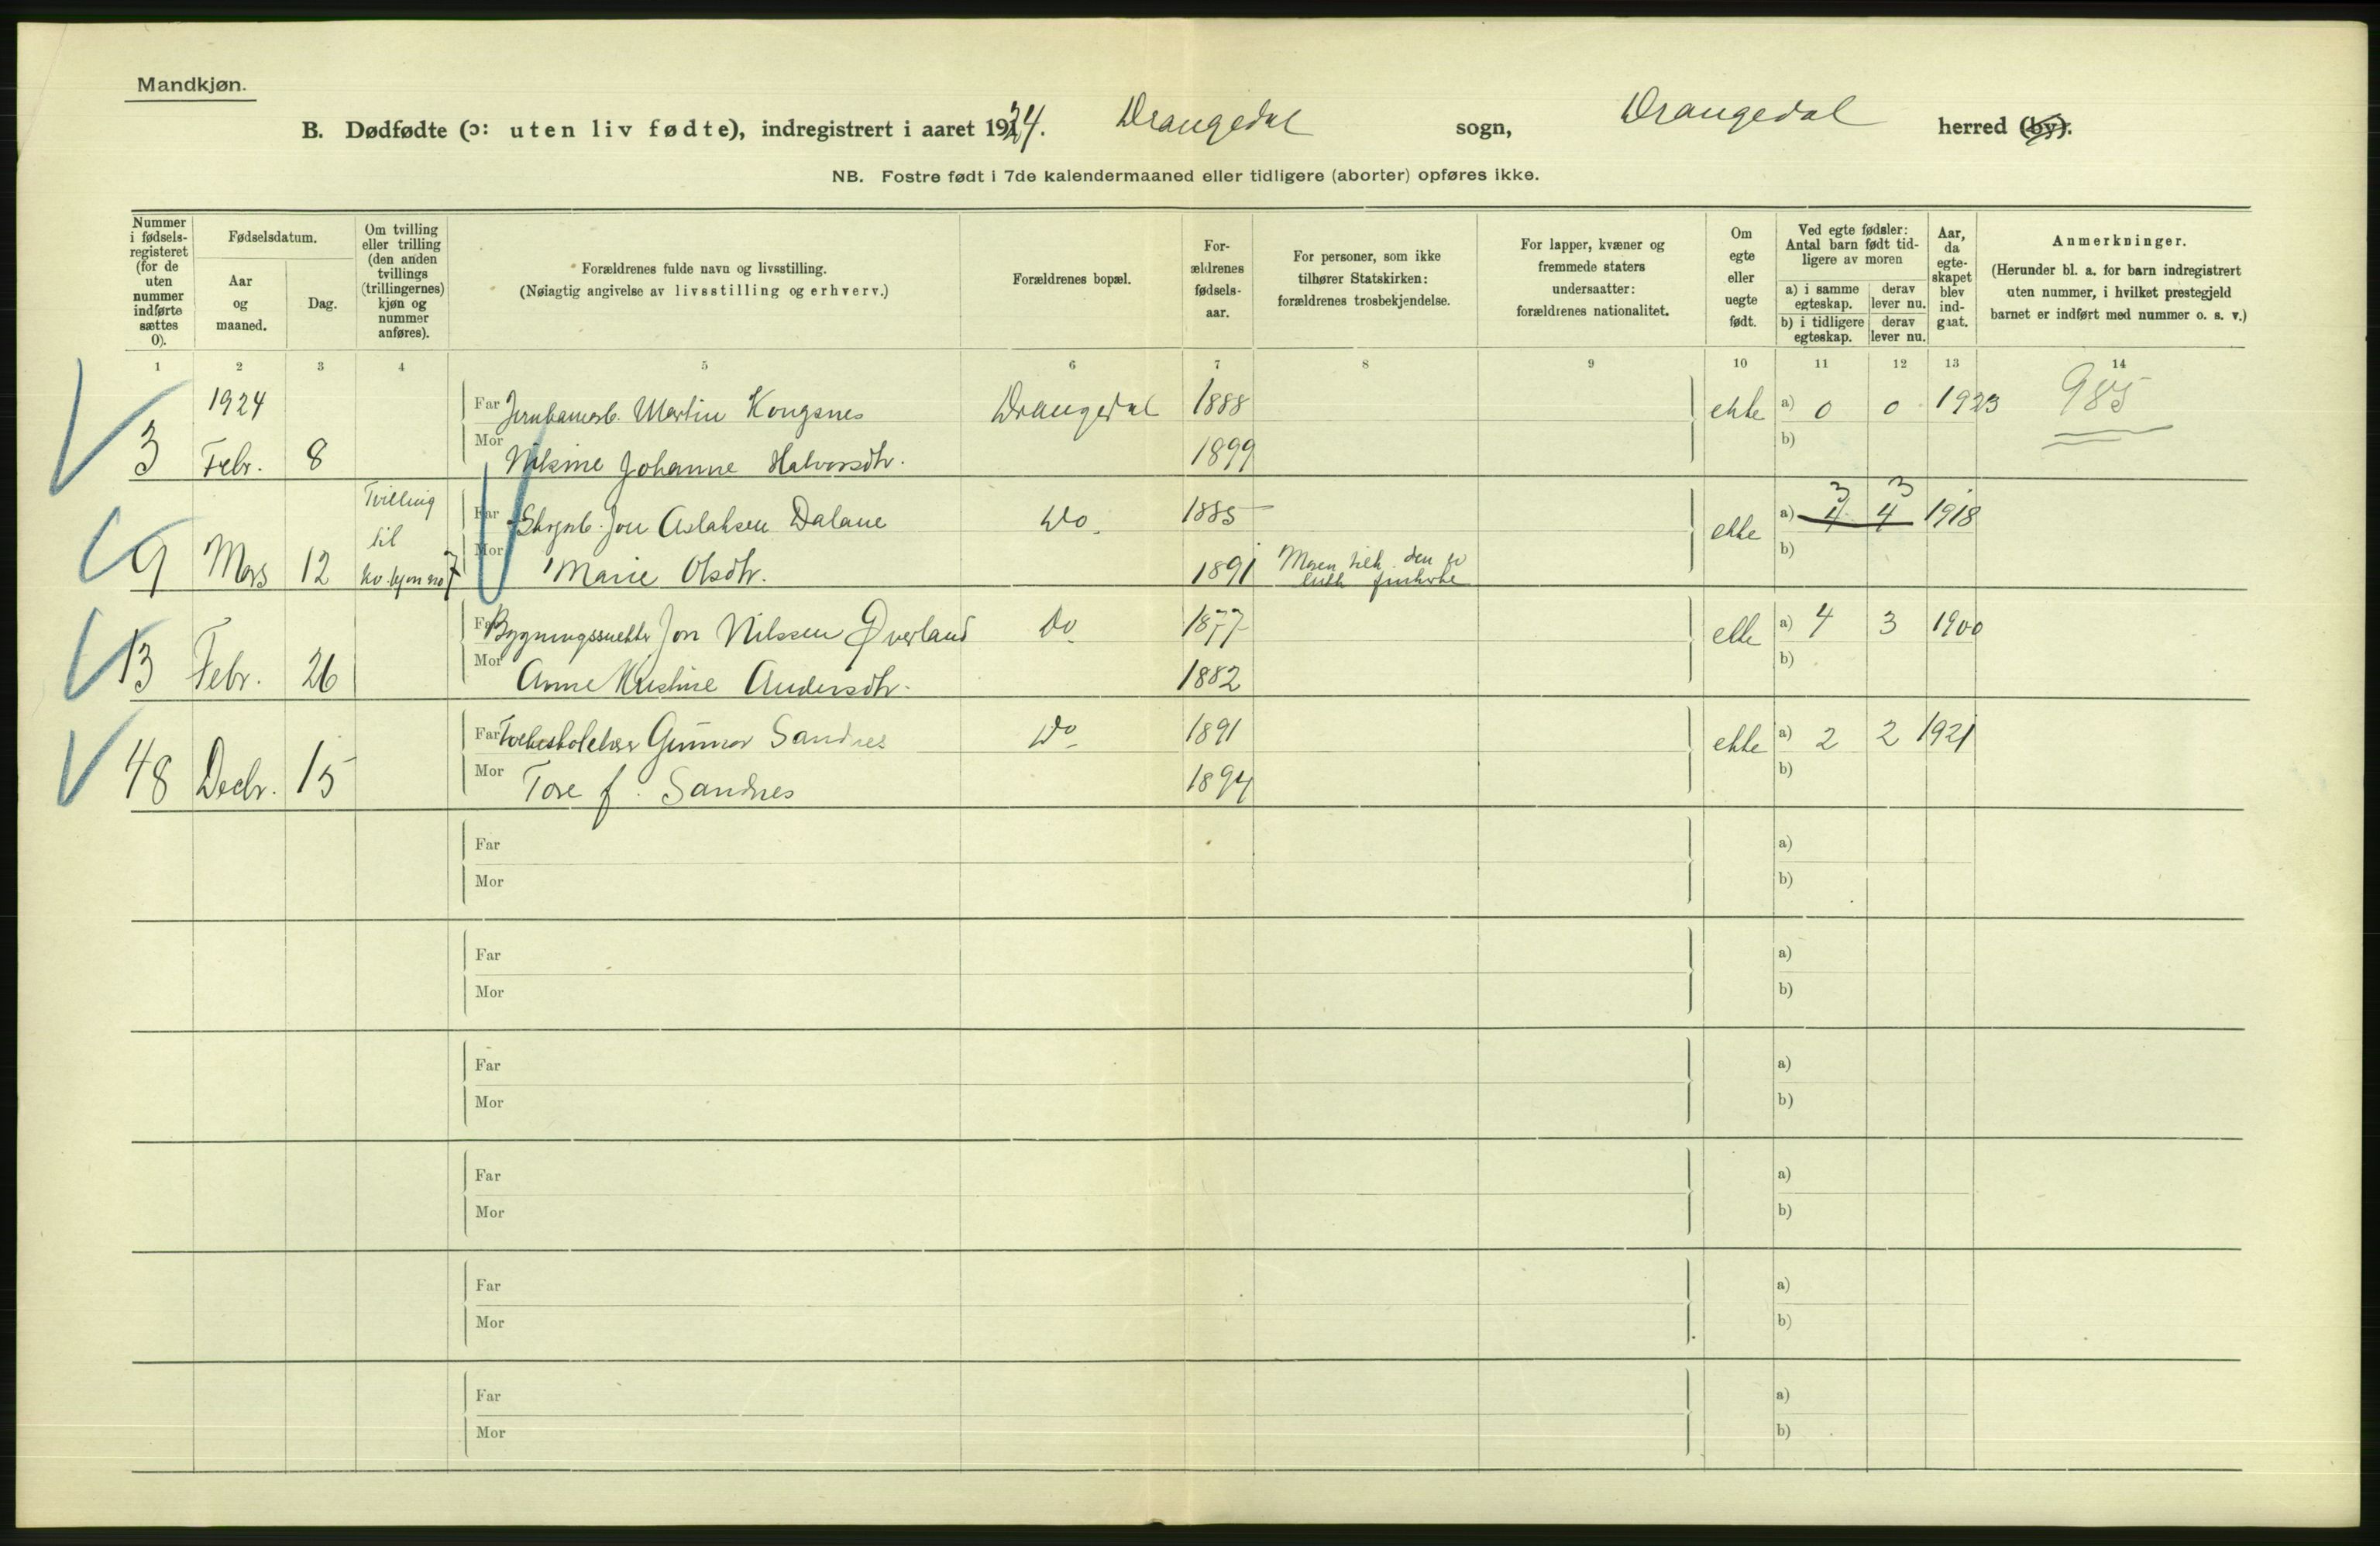 Mandkjøn.
B. Dødfødte (ɔ: uten liv fødte), indregistrert i aaret 1924. Drangedal sogn, Drangedal herred (by).
NB. Fostre født i 7de kalendermaaned eller tidligere (aborter) opføres ikke.
Nummer i fødsels-registeret (for de uten nummer indførte sættes 0).
Fødselsdatum.
Aar og maaned.
Dag.
Om tvilling eller trilling (den anden tvillings (trillingernes) kjøn og nummer anføres).
Forældrenes fulde navn og livsstilling.
(Nøiagtig angivelse av livsstilling og erhverv.)
Forældrenes bopæl.
For-ældrenes fødsels-aar.
For personer, som ikke tilhører Statskirken: forældrenes trosbekjendelse.
For lapper, kvæner og fremmede staters undersaatter: forældrenes nationalitet.
Om egte eller uegte født.
Ved egte fødsler: Antal barn født tid-ligere av moren
a) i samme egteskap.
derav lever nu.
b) i tidligere egteskap.
derav lever nu.
Aar, da egte-skapet blev ind-gaat.
Anmerkninger.
(Herunder bl. a. for barn indregistrert uten nummer, i hvilket prestegjeld barnet er indført med nummer o. s. v.)
1 2 3 4 5 6 7 8 9 10 11 12 13 14
1924 Far Jernbanearb. Martin Kongsnes Drangedal 1888 ekte a) 0 0 1923 985
3 Febr. 8 Mor Nilsine Johanne Halvorsdtr. 1899 b)
Tvilling til kv.kjøn no 7
Far Skogsarb. Jon Aslaksen Dalane Do 1885 ekte a) 3 3 4 4 1918
9 Mars 12 Mor Marie Olsdtr. 1891 Moren tilh. den ev luth frikirke b)
Far Bygningssnekker Jon Nilssen Øverland Do 1877 ekte a) 4 3 1900
13 Febr. 26 Mor Anne Kristine Andersdtr. 1882 b)
Far Folkeskolelærer Gunnar Sandnes Do 1891 ekte a) 2 2 1921
48 Decbr. 15 Mor Tore f. Sandnes 1894 b)
Far a)
Mor b)
Far a)
Mor b)
Far a)
Mor b)
Far a)
Mor b)
Far a)
Mor b)
Far a)
Mor b)